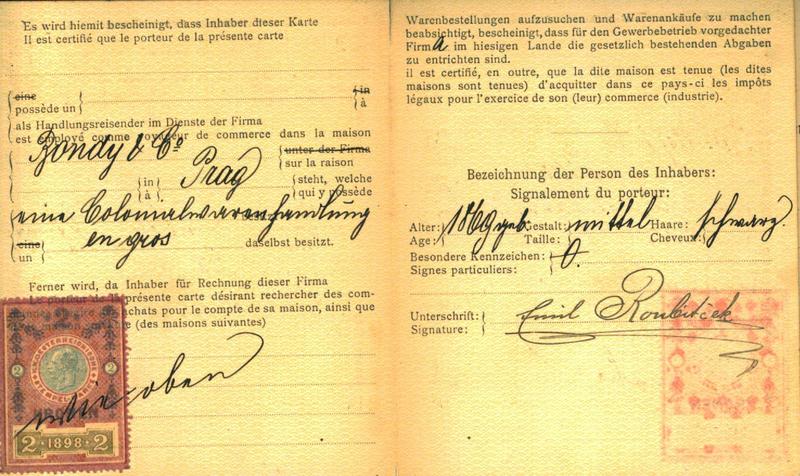 Es wird hiemit bescheinigt, dass Inhaber dieser Karte
Il est certifié que le porteur de la présente carte
eine in
possède un à
als Handlungsreisender im Dienste der Firma
est employé comme voyageur de commerce dans la maison
Bondy & Co unter der Firma
sur la raison
in Prag steht, welche
à qui y possède
eine Colonialwarenhandlung
eine en gros daselbst besitzt.
un
Ferner wird, da Inhaber für Rechnung dieser Firma
Le porteur de la présente carte désirant rechercher des com-
achats pour le compte de sa maison, ainsi que
(des maisons suivantes)
wie oben
2 2
2 · 1898 · 2
Warenbestellungen aufzusuchen und Warenankäufe zu machen
beabsichtigt, bescheinigt, dass für den Gewerbebetrieb vorgedachter
Firma im hiesigen Lande die gesetzlich bestehenden Abgaben
zu entrichten sind.
il est certifié, en outre, que la dite maison est tenue (les dites
maisons sont tenues) d'acquitter dans ce pays-ci les impôts
légaux pour l'exercice de son (leur) commerce (industrie).
Bezeichnung der Person des Inhabers:
Signalement du porteur:
Alter: 1869 geb. Gestalt: mittel Haare: schwarz.
Age: Taille: Cheveux:
Besondere Kennzeichen: 0.
Signes particuliers:
Unterschrift: Emil Roubitček
Signature: